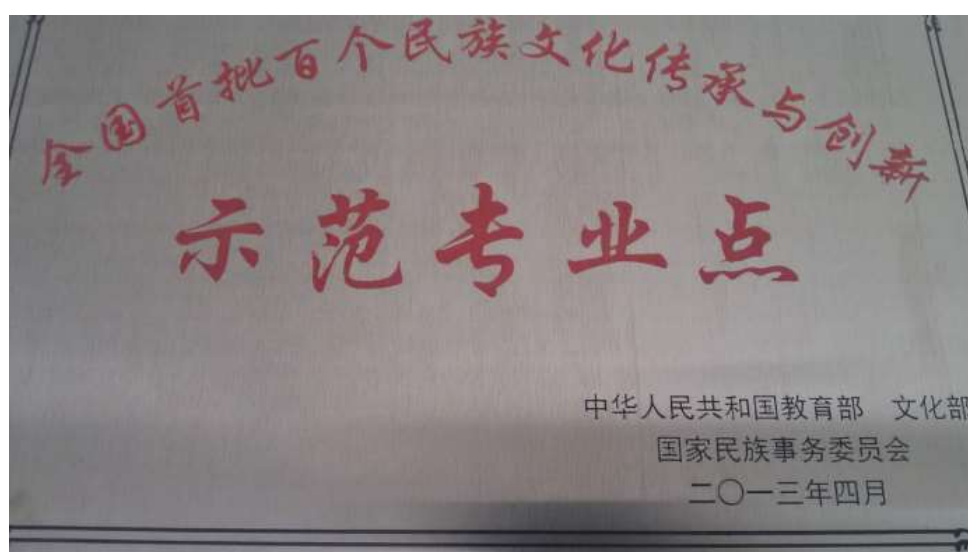 全国首批百个民族文化传承与创新
示范专业点
中华人民共和国教育部 文化部
国家民族事务委员会
二〇一三年四月